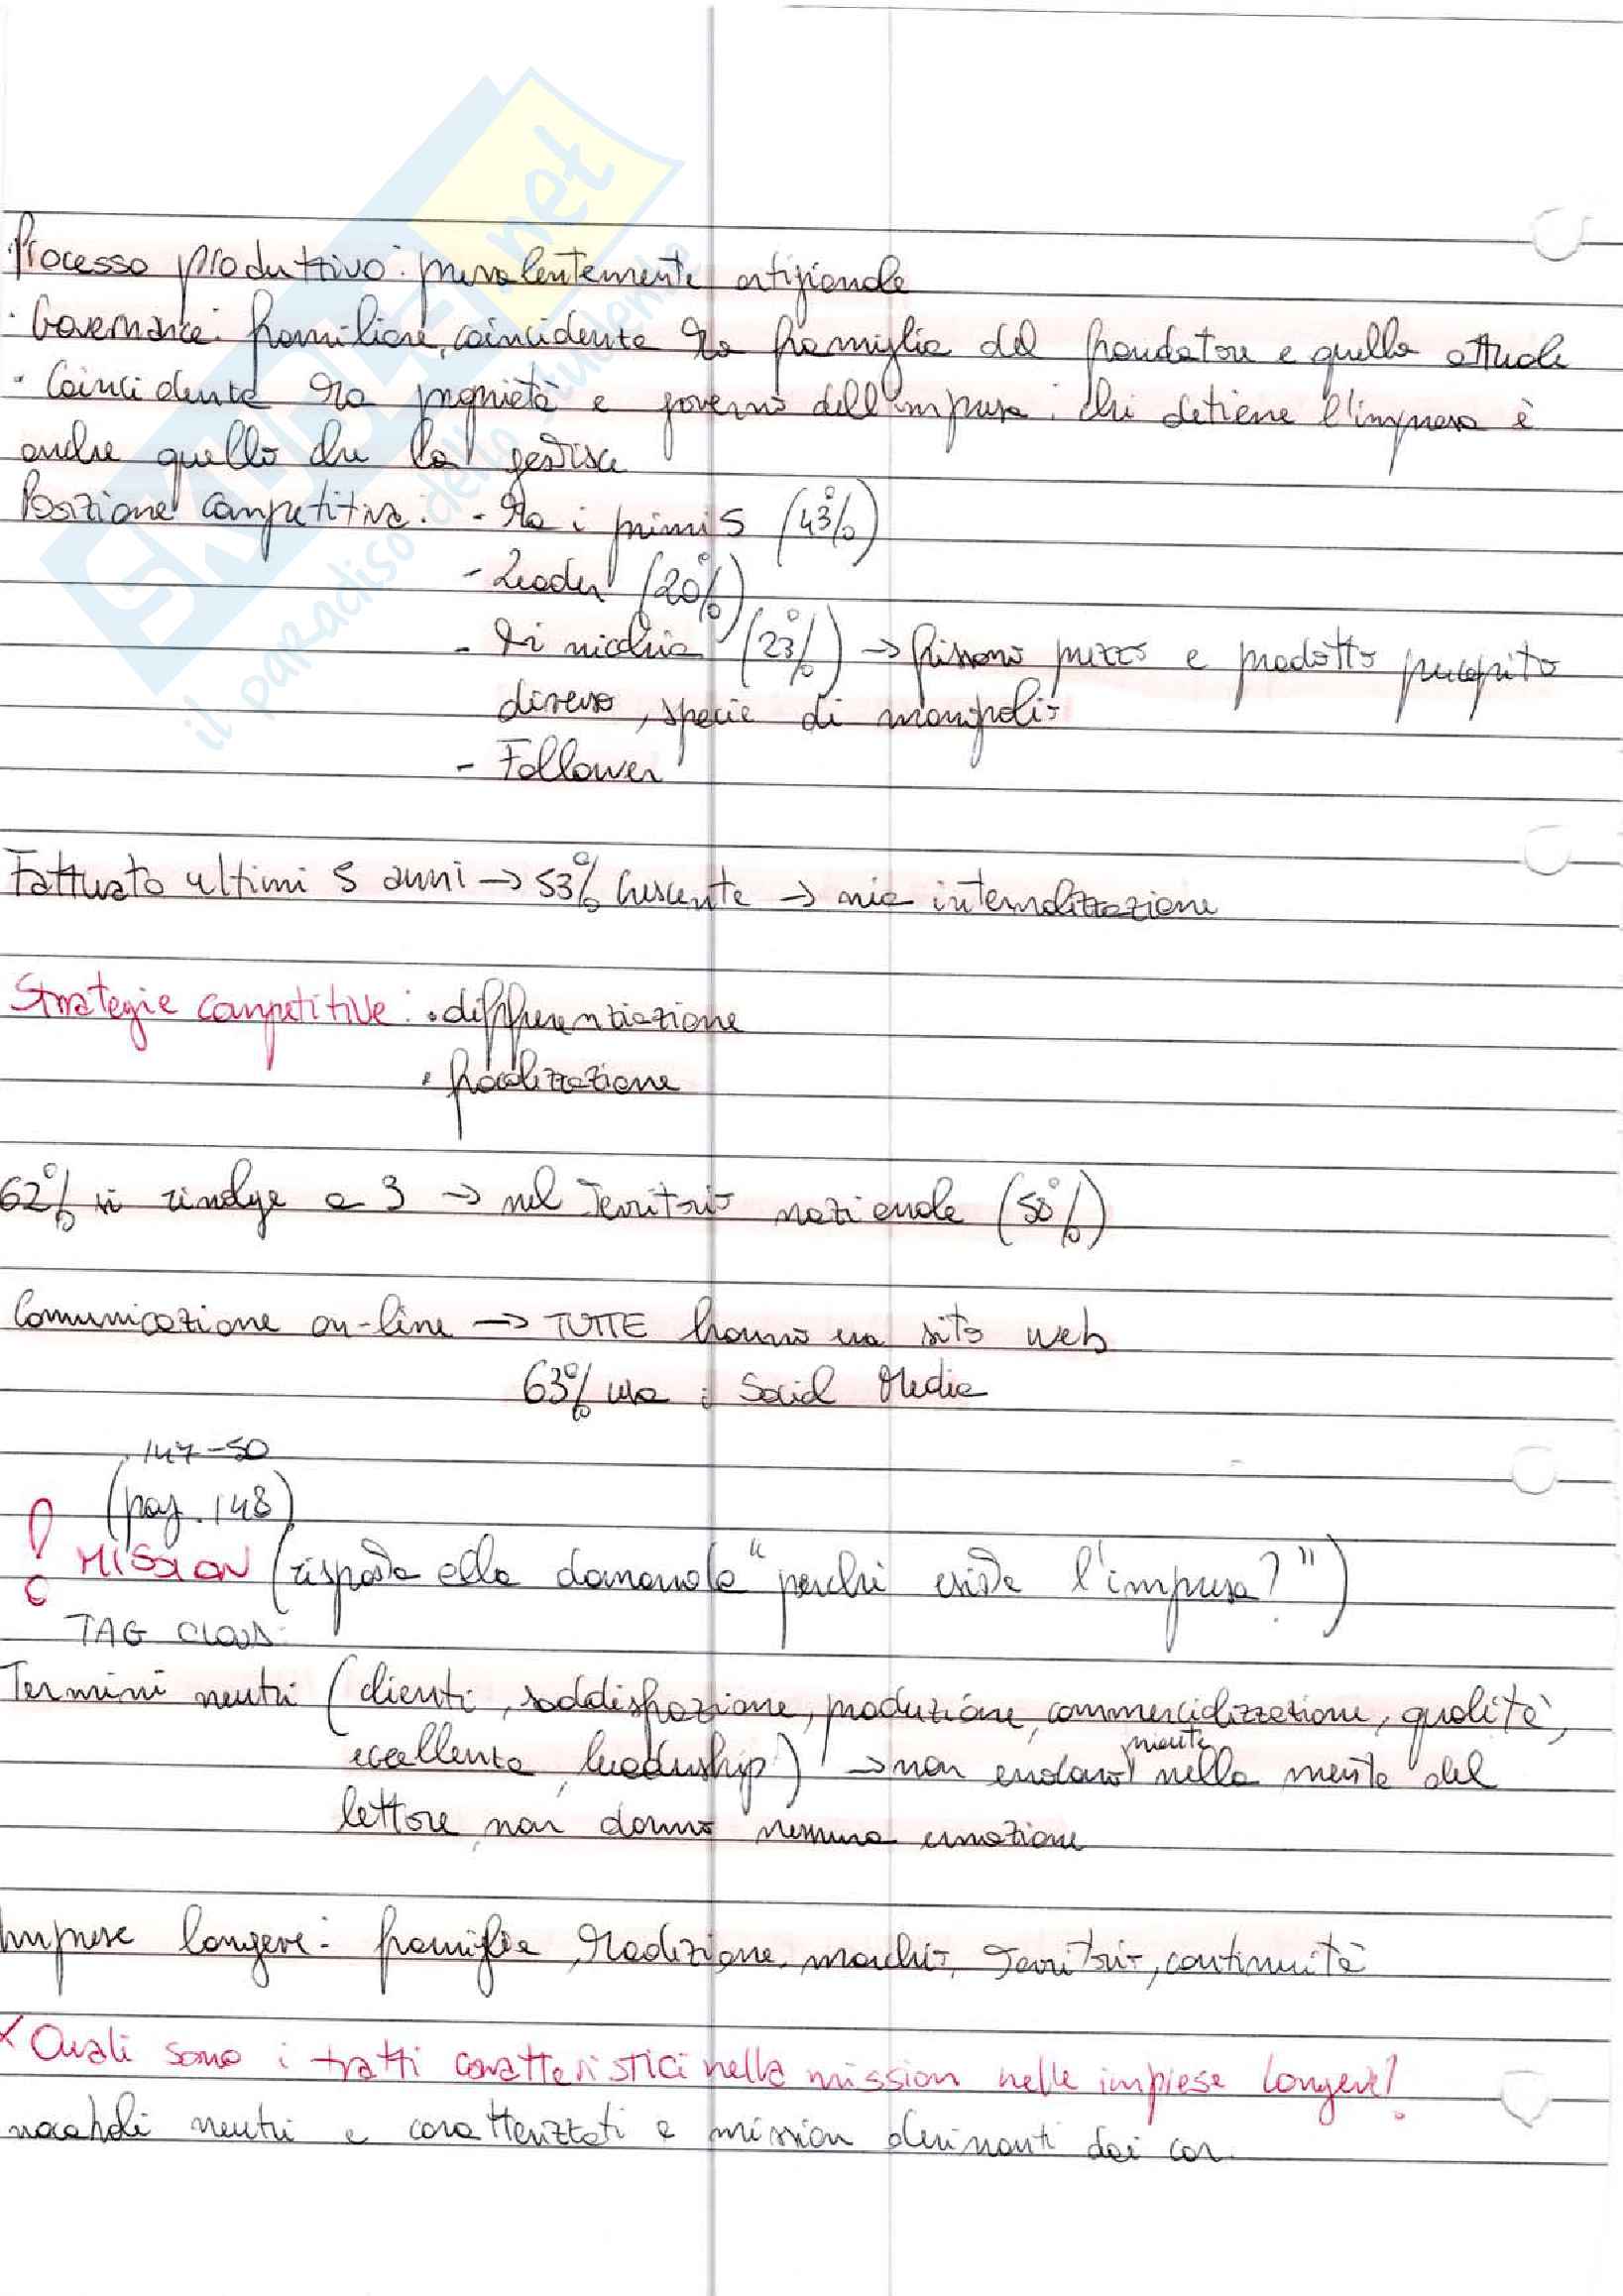 SKUOLA.net
il paradiso dello studente
Processo produttivo: prevalentemente artigianale
· Governance: familiare, coincidenza tra famiglia del fondatore e quella attuale
· Coincidenza tra proprietà e governo dell'impresa: chi detiene l'impresa è
anche quello che la gestisce
Posizione competitiva: - tra i primi 5 (43%)
- Leader (20%)
- Di nicchia (23%) → fissano prezzo e prodotto percepito
diverso, specie di monopolio
- Follower
Fatturato ultimi 5 anni → 53% crescente → via
Strategie competitive: · differenziazione
· focalizzazione
62% si rivolge a 3 → nel territorio nazionale (58%)
Comunicazione on-line → TUTTE hanno un sito web
63% usa i Social Media
147-50
(pag. 148)
! MISSION (risposta alla domanda "perché esiste l'impresa?")
TAG CLOUD:
Termini neutri (clienti, soddisfazione, produzione, commercializzazione, qualità,
eccellenza, leadership) → non evocano niente nella mente del
lettore, non danno nessuna emozione
Imprese longeve: famiglia, tradizione, marchio, territorio, continuità
x Quali sono i tratti caratteristici nella mission nelle imprese longeve?
vocaboli neutri e caratterizzati e mission derivanti dai car.